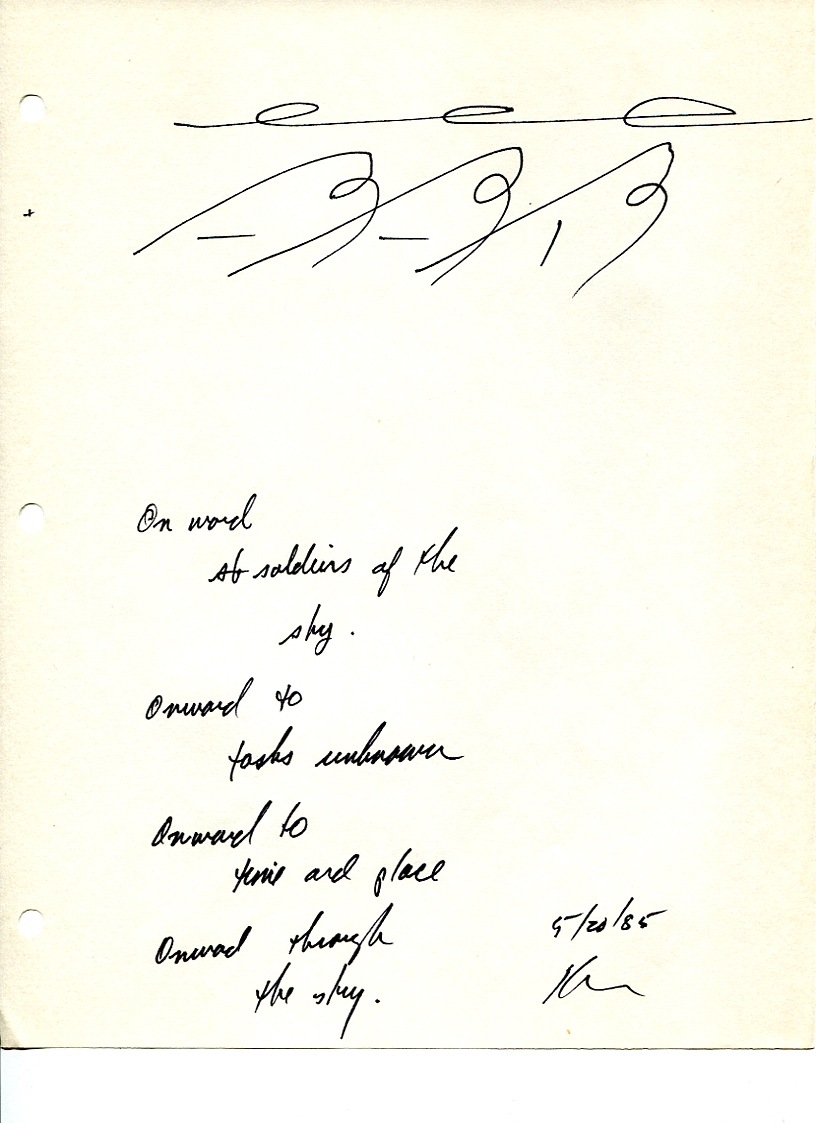 On word
soldiers of the
sky.
Onward to
tasks unknown
Onward to
time and place
Onward through
the sky.
5/20/85